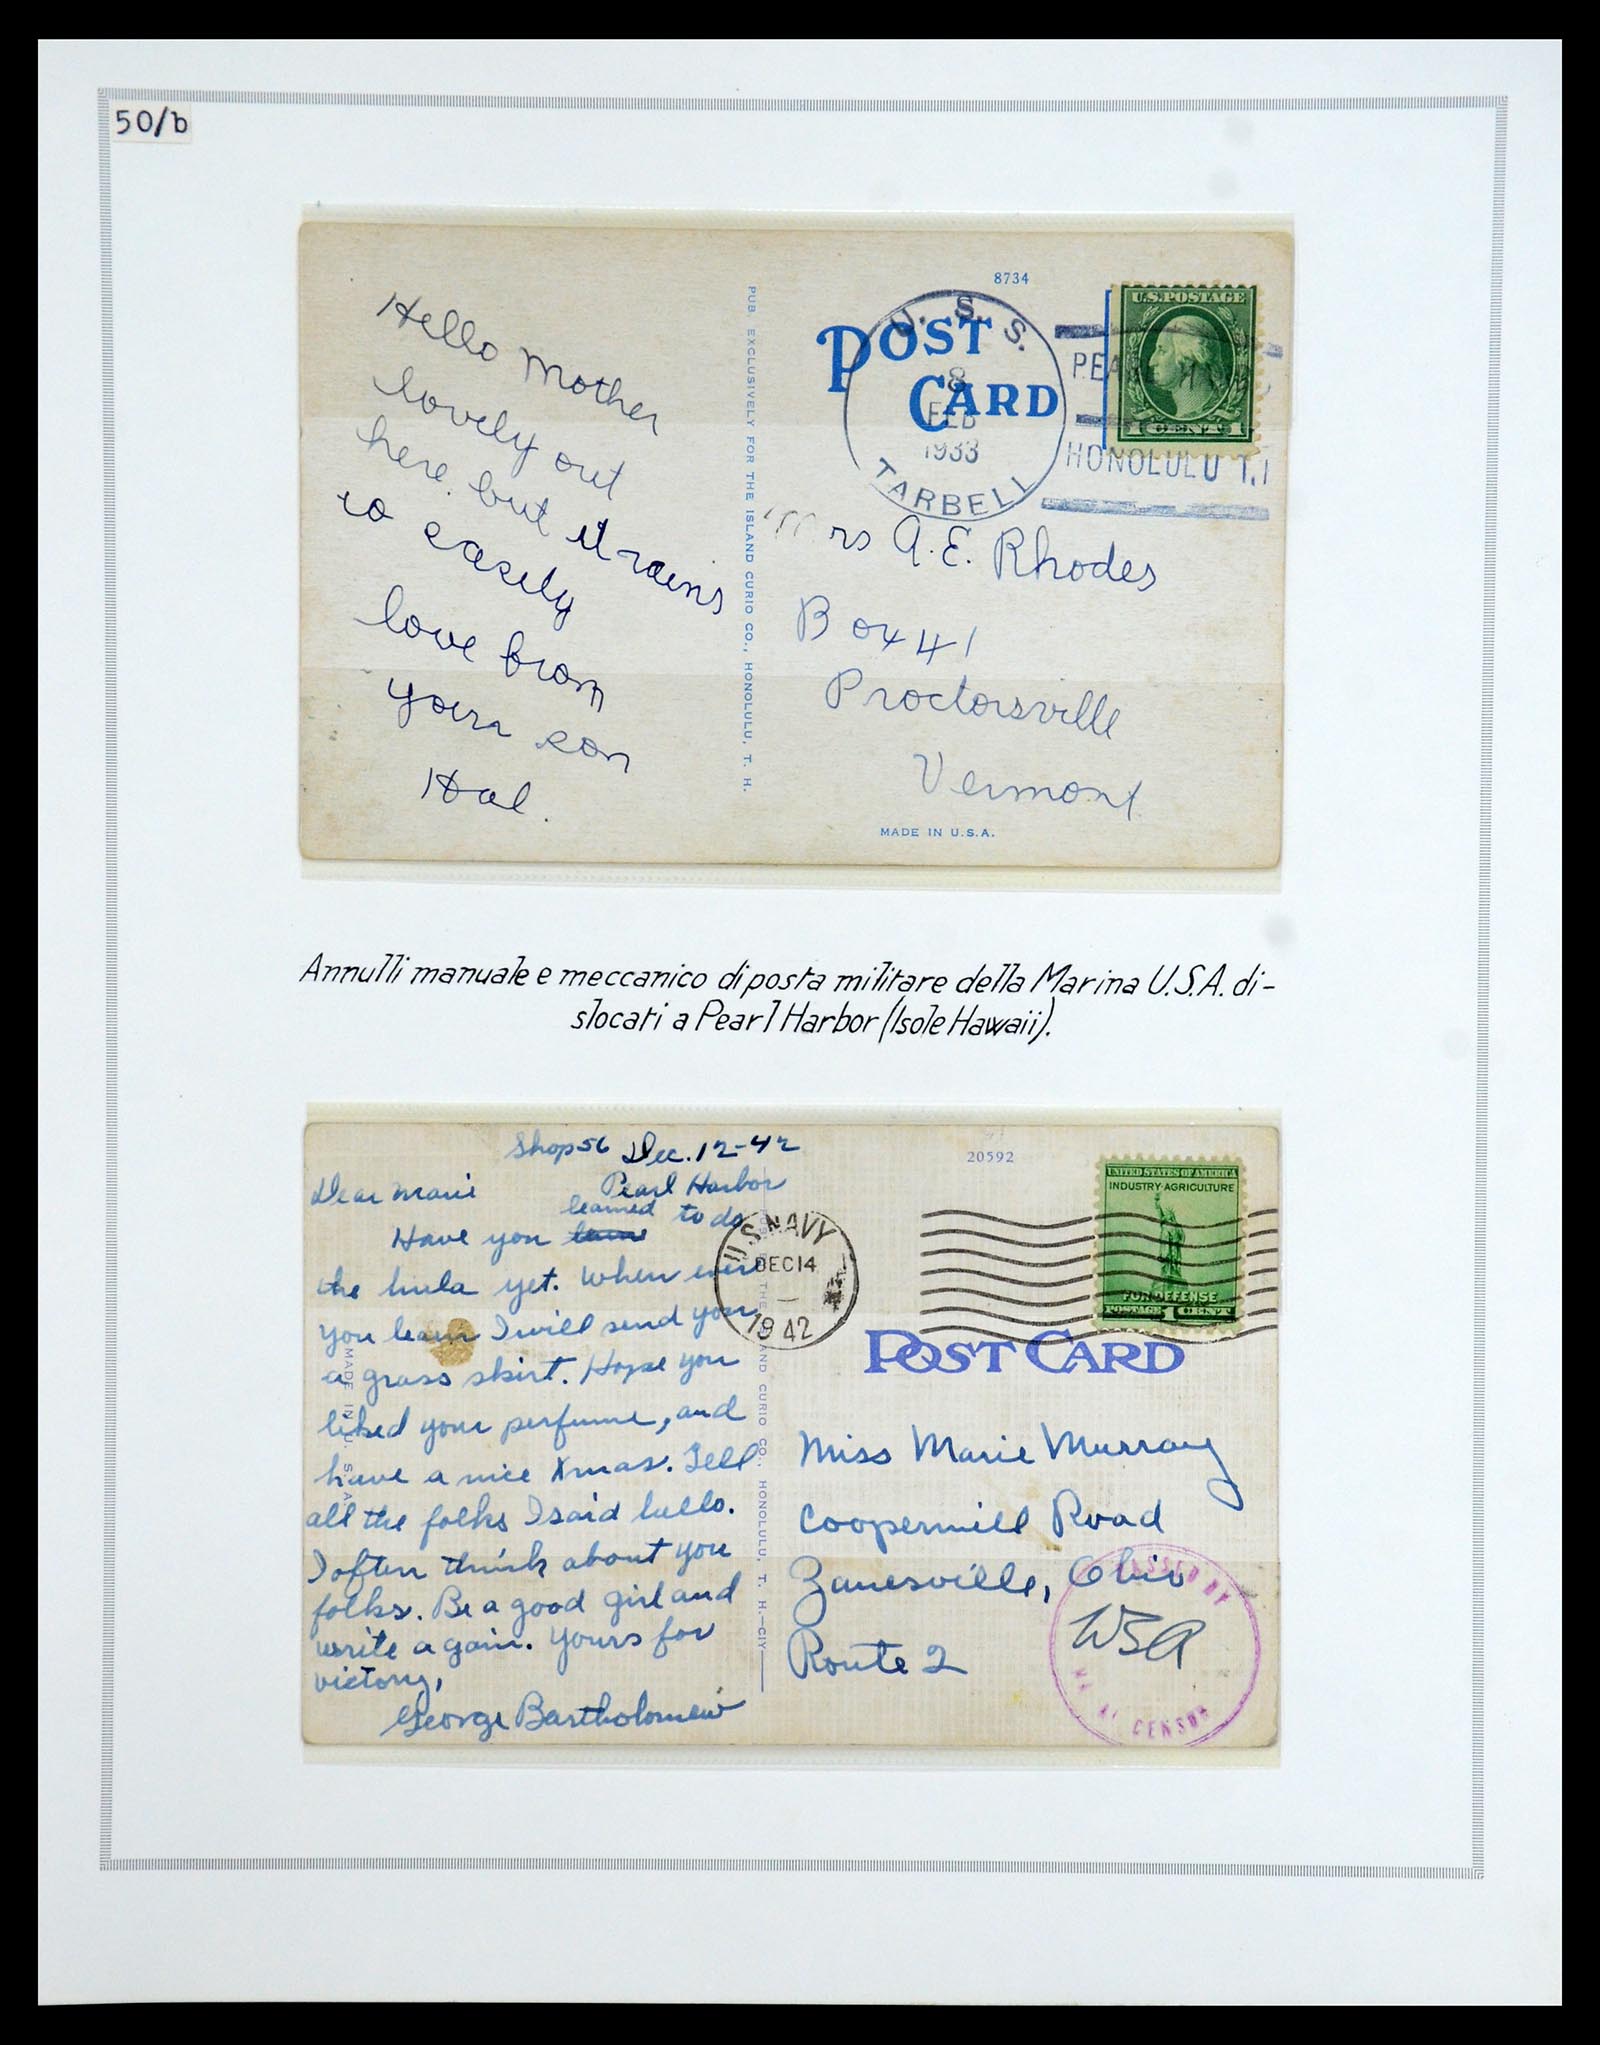 50/b
8734
POST
CARD
U. S. S.
8
FEB
1933
TARBELL
HONOLULU T.
U.S. POSTAGE
1 CENT 1
Hello Mother
lovely out
here but it rains
so easily
love from
your son
Hal.
PUB. EXCLUSIVELY FOR THE ISLAND CURIO CO., HONOLULU, T. H.
Mrs A.E. Rhodes
Box 41
Proctorsville
Vermont
MADE IN U.S.A.
Annulli manuale e meccanico di posta militare della Marina U.S.A. di-
slocati a Pearl Harbor (Isole Hawaii).
Shop 56 Dec. 12-42
Pearl Harbor
Dear Marie
learned
Have you to do
the hula yet. When ever
you learn I will send you
a grass skirt. Hope you
liked your perfume, and
have a nice Xmas. Tell
all the folks I said hello.
I often think about you
folks. Be a good girl and
write again. Yours for
victory,
George Bartholomew
MADE IN U. S. A.
U.S. NAVY
DEC 14
1942
20592
UNITED STATES OF AMERICA
INDUSTRY·AGRICULTURE
FOR DEFENSE
POSTAGE 1 CENT
POST CARD
THE ISLAND CURIO CO., HONOLULU, T. H.—CIY
Miss Marie Murray
Coopermill Road
Zanesville, Ohio
Route 2
PASSED BY
WSA
NAVAL CENSOR